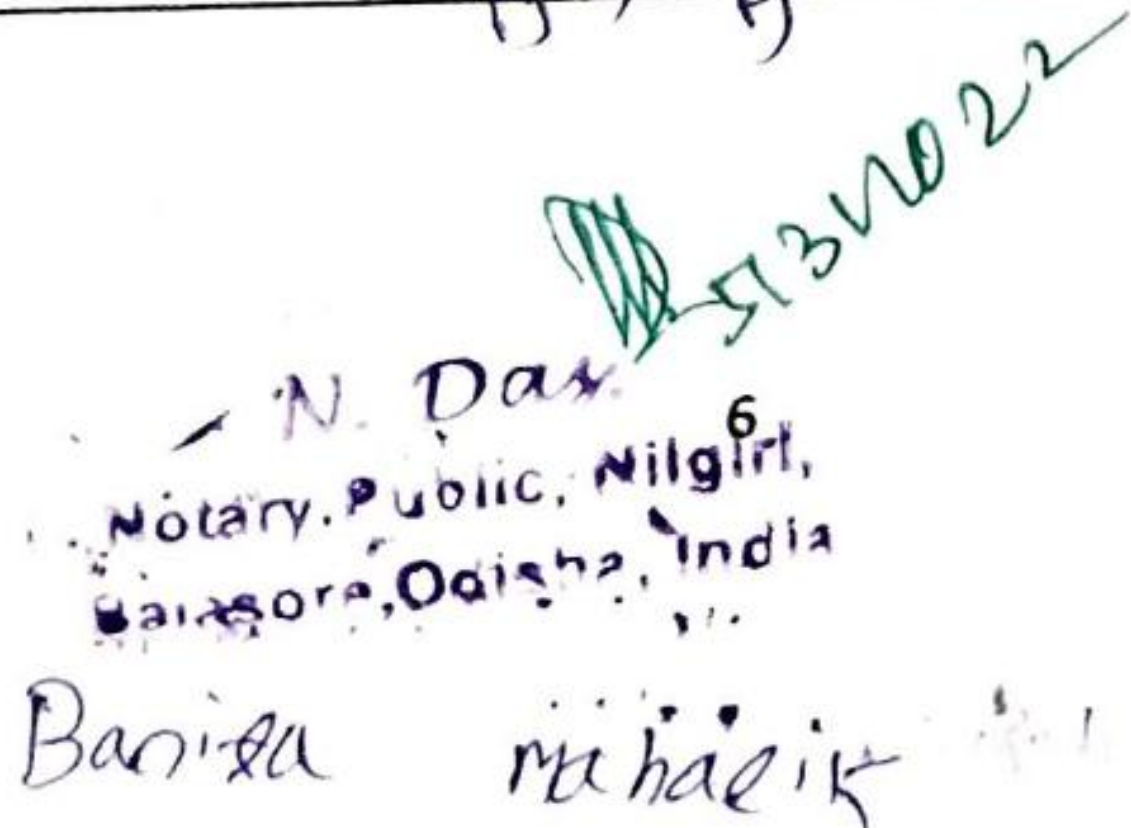 5/3/2022
N. Das
6
Notary, Public, Nilgiri,
Balasore, Odisha, India
Banita mahalik